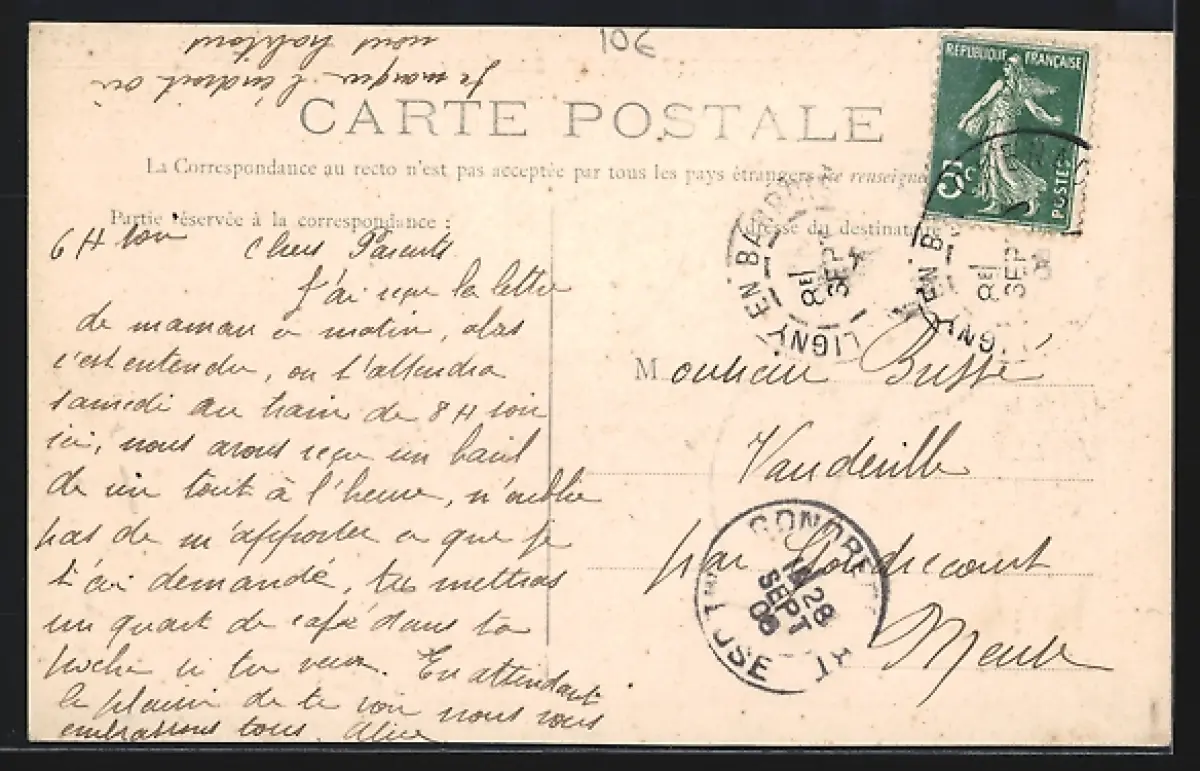 Je marque l'endroit où
nous habitons
10€
CARTE POSTALE
La Correspondance au recto n'est pas acceptée par tous les pays étrangers (Se renseigne
Partie réservée à la correspondance :
Adresse du destinataire
REPUBLIQUE FRANÇAISE
5c
POSTES
LIGNY EN BARROIS
SEPT
LIGNY EN B
SEPT
GONDRE
28
SEPT
08
MEUSE
6 H soir Chers Parents
J'ai reçu la lettre
de maman ce matin, alors
c'est entendu, on t'attendra
samedi au train de 8 H soir
ici, nous avons reçu un baril
de vin tout à l'heure, n'oublie
pas de m'apporter ce que je
t'ai demandé, tu mettras
un quart de café dans ta
poche si tu veux. En attendant
le plaisir de te voir nous vous
embrassons tous. Alice
Monsieur Bussé
Vaudeville
par Gondrecourt
Meuse